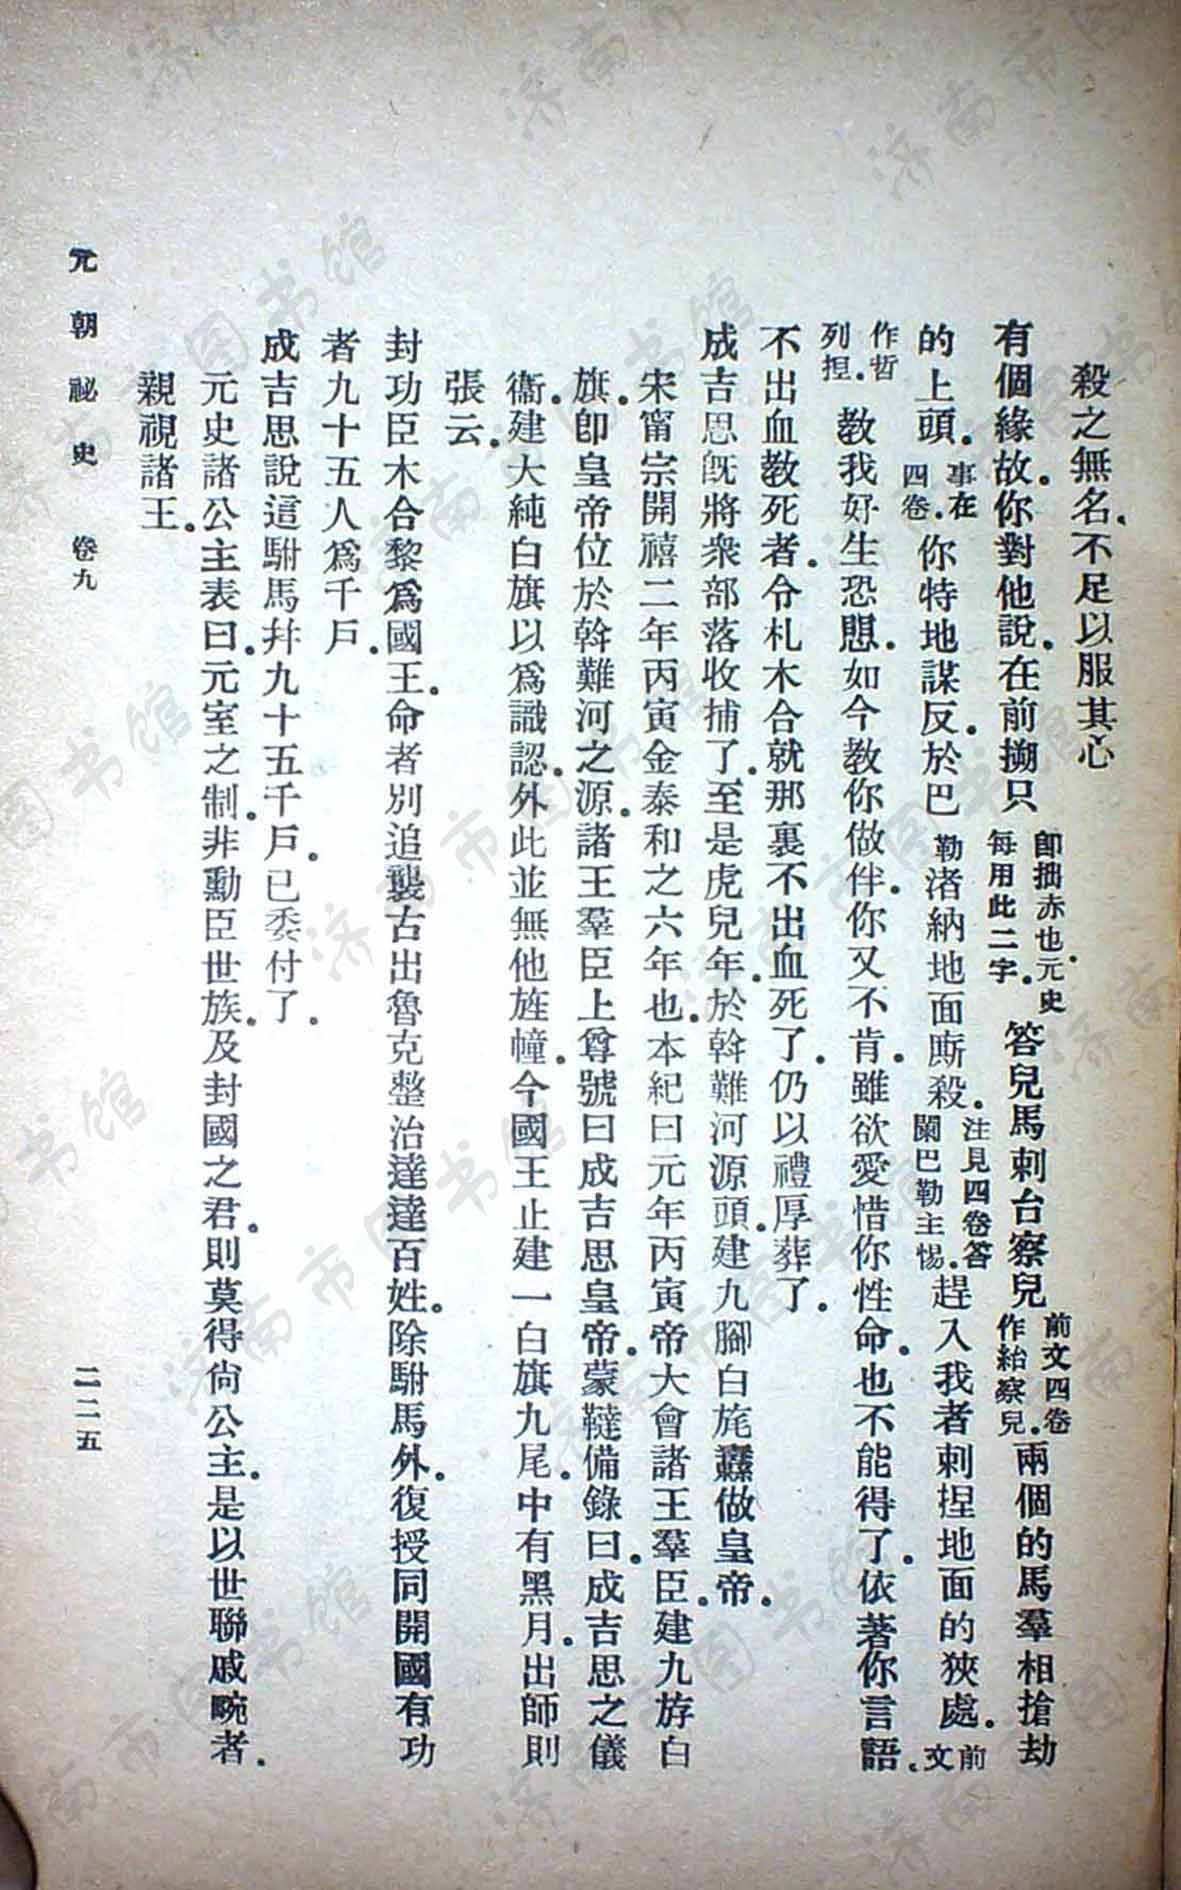 殺之無名.不足以服其心
有個緣故.你對他說.在前搠只即拙赤也.元史每用此二字.答兒馬剌台察兒前文四卷作紿察兒.兩個的馬羣相搶劫
的上頭.事在四卷.你特地謀反.於巴勒渚納地面廝殺.注見四卷答闌巴勒主惕.趕入我者剌捏地面的狹處.前文
作哲列捏.教我好生恐懼.如今教你做伴.你又不肯.雖欲愛惜你性命.也不能得了.依著你言語.
不出血教死者.令札木合就那裏不出血死了.仍以禮厚葬了.
成吉思旣將衆部落收捕了.至是虎兒年.於斡難河源頭.建九腳白旄纛做皇帝.
宋甯宗開禧二年丙寅金泰和之六年也.本紀曰元年丙寅帝大會諸王羣臣.建九斿白
旗.卽皇帝位於斡難河之源.諸王羣臣上尊號曰成吉思皇帝.蒙韃備錄曰.成吉思之儀
衞.建大純白旗以爲識認.外此並無他旌幢.今國王止建一白旗九尾.中有黑月.出師則
張云.
封功臣木合黎爲國王.命者別追襲古出魯克整治達達百姓.除駙馬外.復授同開國有功
者九十五人爲千戶.
成吉思說這駙馬幷九十五千戶.已委付了.
元史諸公主表曰.元室之制.非勳臣世族.及封國之君.則莫得尙公主.是以世聯戚畹者.
親視諸王.
元朝祕史 卷九 二二五